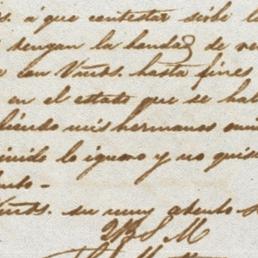 s. á que contestar sirbe l
tengan la bondad de ve
con Vmds. hasta fines
en el estado que se hal
biendo mis hermanos
nido lo ignoro y no quis
nto.-
Vmds. su muy atento S
2BSM